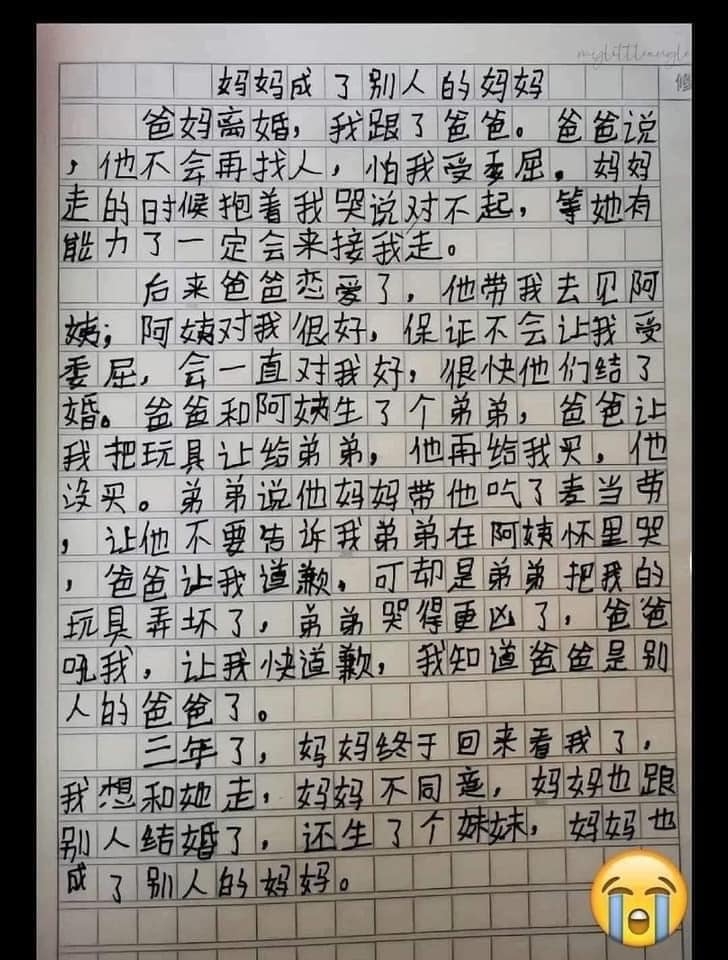 mylittleangle
修
妈妈成了别人的妈妈
爸妈离婚，我跟了爸爸。爸爸说
，他不会再找人，怕我受委屈。妈妈
走的时候抱着我哭说对不起，等她有
能力了一定会来接我走。
后来爸爸恋爱了，他带我去见阿
姨；阿姨对我很好，保证不会让我受
委屈，会一直对我好，很快他们结了
婚。爸爸和阿姨生了个弟弟，爸爸让
我把玩具让给弟弟，他再给我买，他
没买。弟弟说他妈妈带他吃了麦当劳
，让他不要告诉我弟弟在阿姨怀里哭
，爸爸让我道歉。可却是弟弟把我的
玩具弄坏了，弟弟哭得更凶了，爸爸
吼我，让我快道歉，我知道爸爸是别
人的爸爸了。
三年了，妈妈终于回来看我了，
我想和她走，妈妈不同意，妈妈也跟
别人结婚了，还生了个妹妹，妈妈也
成了别人的妈妈。